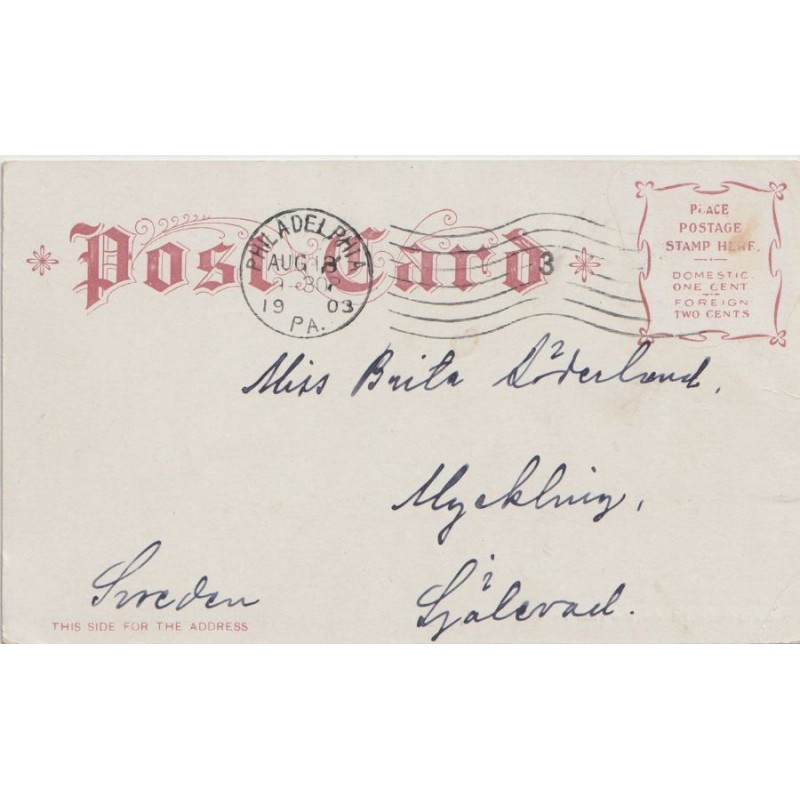 Post Card
PHILADELPHIA
AUG 18
30
1903
PA.
3
PLACE
POSTAGE
STAMP HERE.
DOMESTIC
ONE CENT
FOREIGN
TWO CENTS
Miss Brita Söderlund,
Myckling,
Själevad.
Sweden
THIS SIDE FOR THE ADDRESS